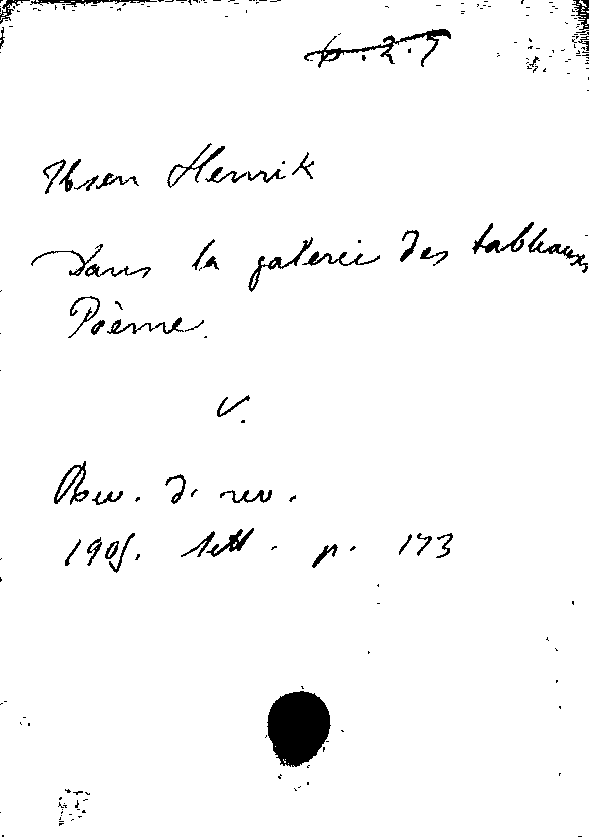 6.2.5
Ibsen Henrik
Dans la galerie des tableaux
Poème.
V.
d. rev.
1905. Sett. p. 173